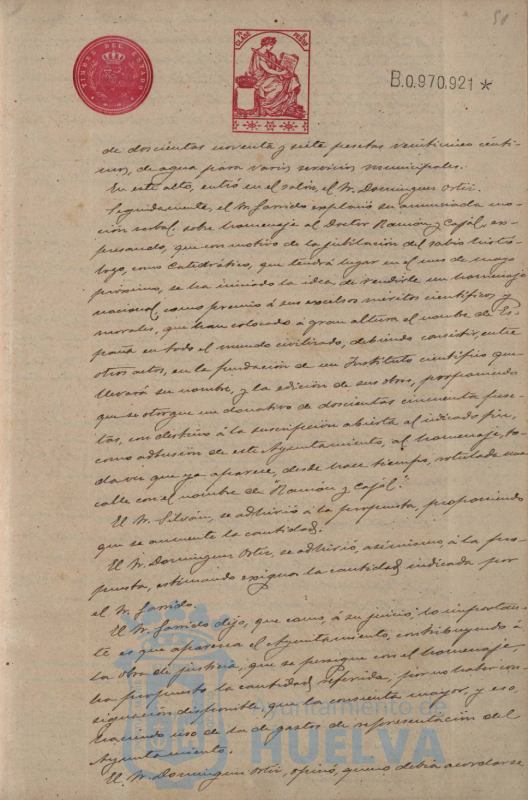 TIMBRE DEL ESTADO
51
B.0.970.921 *
de doscientas noventa y siete pesetas veinticinco cénti-
mos, de agua para varios servicios municipales.
En este alto, entró en el salón, el Sr. Dominguez Ortiz.
Seguidamente, el Sr. Garrido explanó su anunciada mo-
ción verbal, sobre homenaje al Doctor Ramón y Cajal, ex-
presando, que con motivo de la jubilación del sabio histó-
logo, como Catedrático, que tendrá lugar en el mes de mayo
próximo, se ha iniciado la idea de rendirle un homenaje
nacional, como premio á sus excelsos méritos científicos y
morales, que han colocado á gran altura el nombre de Es-
paña en todo el mundo civilizado, debiendo consistir, entre
otros actos, en la fundación de un Instituto científico que
llevará su nombre, y la edición de sus obras, proponiendo
que se otorgue un donativo de doscientas cincuenta pese-
tas, con destino á la suscripción abierta al indicado fin,
como adhesión de este Ayuntamiento, al homenaje, to-
da vez que ya aparece, desde hace tiempo, rotulada una
calle con el nombre de "Ramón y Cajal."
El Sr. Silván, se adhirió á la propuesta, proponiendo
que se aumente la cantidad.
El Sr. Dominguez Ortiz, se adhirió, asimismo, á la pro-
puesta, estimando exigua la cantidad indicada por
el Sr. Garrido.
El Sr. Garrido dijo, que como, á su juicio, lo importan-
te es que aparezca el Ayuntamiento, contribuyendo á
la obra de justicia, que se persigue con el homenaje,
ha propuesto la cantidad referida, por no haber con-
signación disponible, que la consienta mayor, y eso,
haciendo uso de la de gastos de representación del
Ayuntamiento.
El Sr. Dominguez Ortiz, opinó, que no debía acordarse
Ayuntamiento de
HUELVA